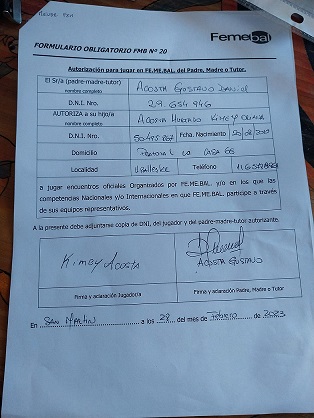 Femebal
FORMULARIO OBLIGATORIO FMB Nº 20
Autorización para jugar en FE.ME.BAL. del Padre, Madre o Tutor.
El Sr/a (padre-madre-tutor) nombre completo ACOSTA GUSTAVO DANIEL
D.N.I. Nro. 29.654.946
AUTORIZA a su hijo/a nombre completo ACOSTA HURTADO KIMEY
D.N.I. Nro. Fcha. Nacimiento
Domicilio LA CASA 66
Localidad V.Ballester Teléfono
a jugar encuentros oficiales Organizados por FE.ME.BAL. y/o en los que las
competencias Nacionales y/o Internacionales en que FE.ME.BAL. participe a través
de sus equipos representativos.
A la presente debe adjuntarse copia de DNI, del jugador y del padre-madre-tutor autorizante.
Kimey Acosta
ACOSTA GUSTAVO
Firma y aclaración Jugador/a Firma y aclaración Padre, Madre o Tutor
En SAN MARTIN a los 28 del mes de Febrero de 2023